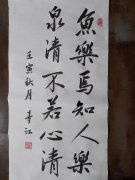 魚樂焉知人樂
泉清不若心清
壬寅秋月 書江